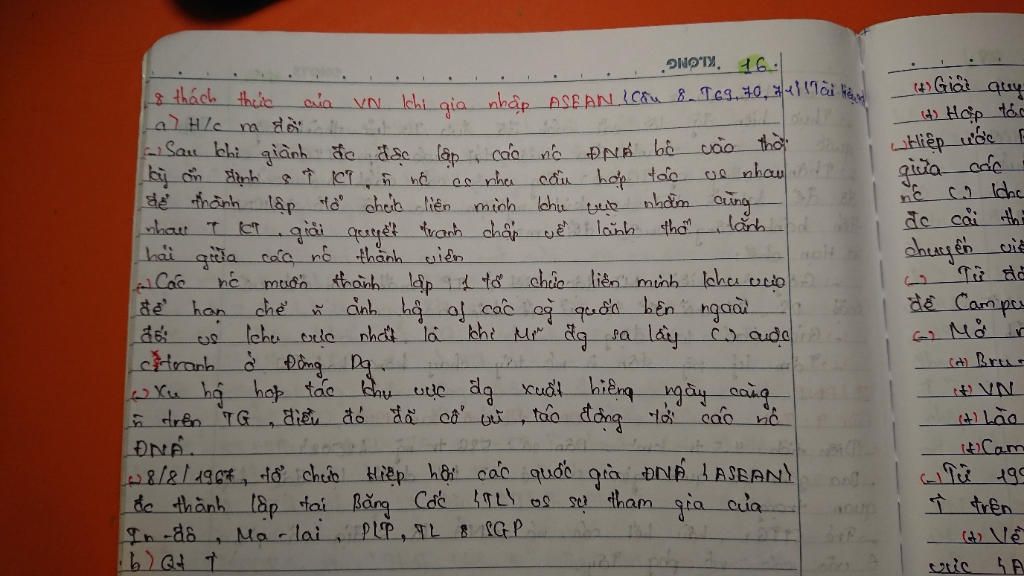 KLONG 16
& thách thức của VN khi gia nhập ASEAN (Câu 8_T69,70,71)(Tài
a) H/c ra đời
(-) Sau khi giành đc độc lập, các nc ĐNÁ bc vào thời
kỳ ổn định & ↑ KT, n nc cs nhu cầu hợp tác vs nhau
để thành lập tổ chức liên minh khu vực nhằm cùng
nhau ↑ KT, giải quyết tranh chấp về lãnh thổ, lãnh
hải giữa các nc thành viên
(-) Các nc muốn thành lập 1 tổ chức liên minh khu vực
để hạn chế n ảnh hg of các cg quốc bên ngoài
đối vs khu vực nhất là khi Mĩ đg sa lầy (.) cuộc
c.tranh ở Đông Dg.
(-) Xu hg hợp tác khu vực đg xuất hiêng ngày càng
n trên TG, điều đó đã cổ vũ, tác động tới các nc
ĐNÁ.
(-) 8/8/1967, tổ chức Hiệp hội các quốc gia ĐNÁ (ASEAN)
đc thành lập tại Băng Cốc (TL) vs sự tham gia của
In-đô, Ma-lai, PLP, TL & SGP
b) Qt ↑
(+) Giải quy
(+) Hợp tác
(-) Hiệp ước
giữa các
nc (.) khu
đc cải thi
chuyến viế
(-) Từ đó
để Campu
(-) Mở r
(+) Bru-
(+) VN
(+) Lào
(+) Cam
(-) Từ 199
↑ trên
(+) Về
vực (A